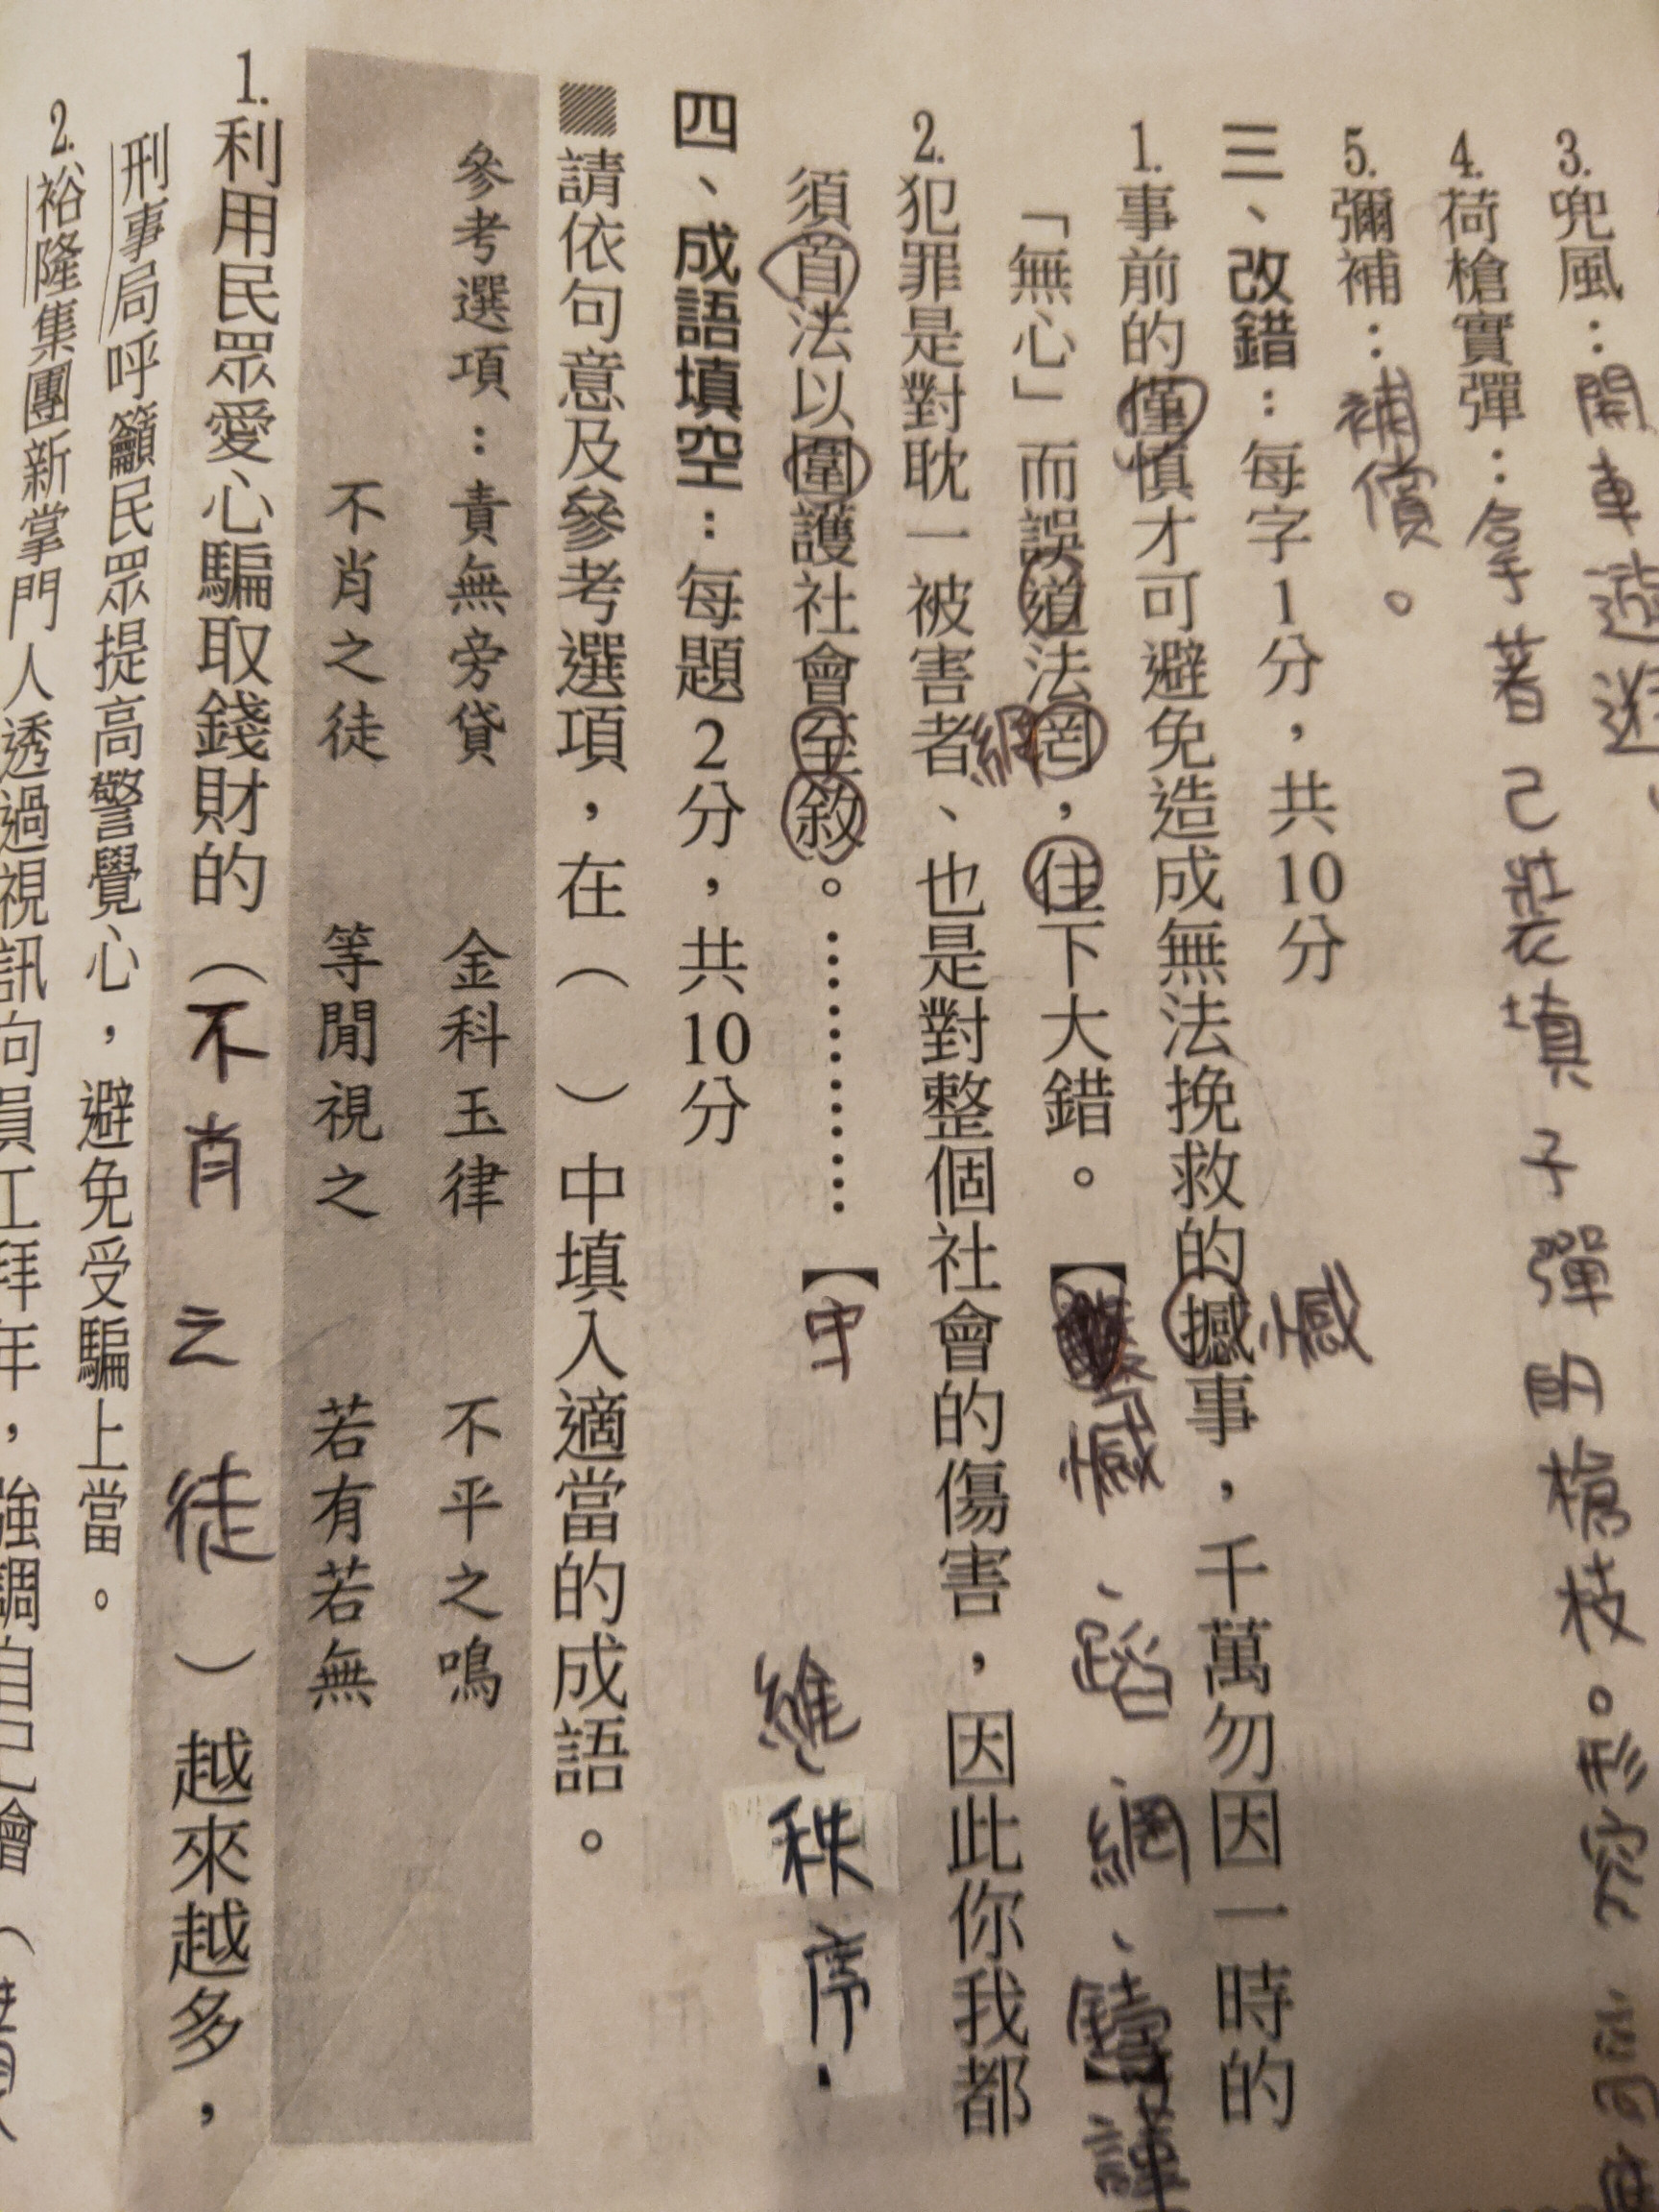 3. 兜風：開車遊逛
4. 荷槍實彈：拿著己裝填子彈的槍枝。形容
5. 彌補：補償。
三、改錯：每字1分，共10分
憾
1. 事前的僅慎才可避免造成無法挽救的撼事，千萬勿因一時的
「無心」而誤道法罔，住下大錯。【憾、蹈、網、鑄】謹
網
2. 犯罪是對耽一被害者、也是對整個社會的傷害，因此你我都
須首法以圍護社會至敘。…………【守 維 秩 序.
四、成語填空：每題2分，共10分
▨請依句意及參考選項，在（ ）中填入適當的成語。
參考選項：責無旁貸 金科玉律 不平之鳴
不肖之徒 等閒視之 若有若無
1. 利用民眾愛心騙取錢財的（不肖之徒）越來越多，
刑事局呼籲民眾提高警覺心，避免受騙上當。
2. 裕隆集團新掌門人透過視訊向員工拜年，強調自己會（